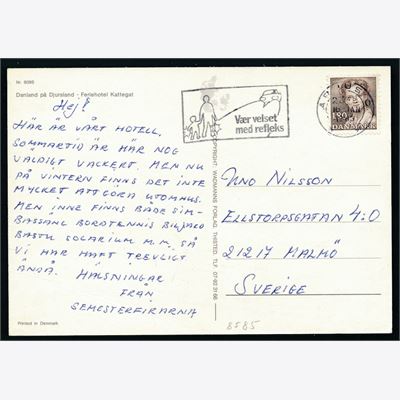 Nr. 8085
Danland på Djursland - Feriehotel Kattegat
Hej!
HÄR ÄR VÅRT HOTELL,
SOMMARTID ÄR HÄR NOG
VÄLDIGT VACKERT. MEN NU
PÅ VINTERN FINNS DET INTE
MYCKET ATT GÖRA UTOMHUS.
MEN INNE FINNS BÅDE SIM-
BASSÄNG BORDTENNIS BILJARD
BASTU SOLARIUM M.M. SÅ
VI HAR HAFT TREVLIGT
ÄNDÅ. HÄLSNINGAR
FRÅN
SEMESTERFIRARNA
Printed in Denmark
COPYRIGHT: WADMANNS FORLAG, THISTED. TLF. 07-92 31 66
Vær velset
med refleks
180
DANMARK
UNO NILSSON
ELLSTORPSGATAN 4:O
21217 MALMÖ
SVERIGE
8585